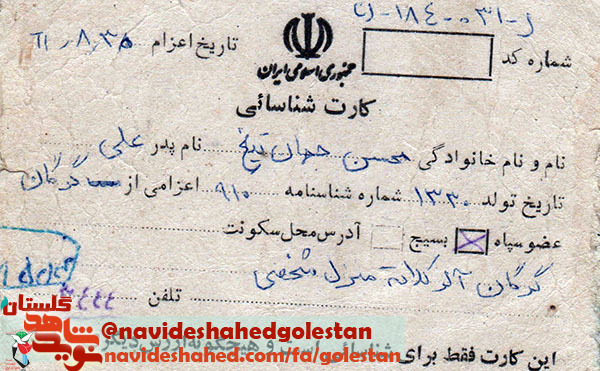 ل-۰۳۱-۱۸۴-
جمهوری اسلامی ایران
شماره کد
تاریخ اعزام ۳۵ر۸ر
کارت شناسائی
نام و نام خانوادگی محسن جهان تیغ نام پدر علی
تاریخ تولد ۱۳۳۰ شماره شناسنامه ۹۱۰ اعزامی از گرگان
عضو سپاه بسیج آدرس محل سکونت
گرگان آلوکلاته منزل شخصی
تلفن ۳۴۴۴
این کارت فقط برای شناسائی است و هیچگونه ارزش دیگر
نوید شاهد گلستان
@navideshahedgolestan
navideshahed.com/fa/golestan